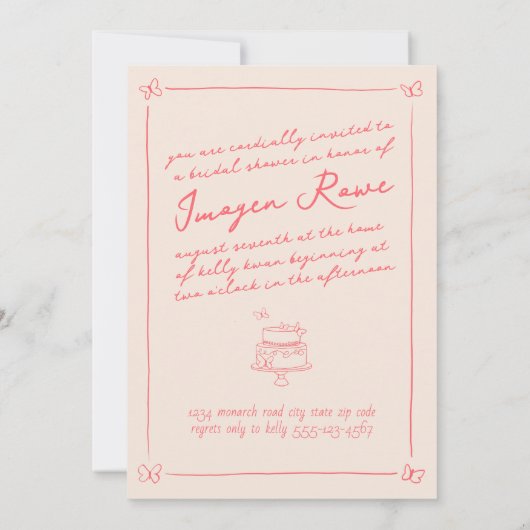 you are cordially invited to
a bridal shower in honor of
Imogen Rowe
august seventh at the home
of kelly kwan beginning at
two o'clock in the afternoon
1234 monarch road city state zip code
regrets only to kelly 555-123-4567